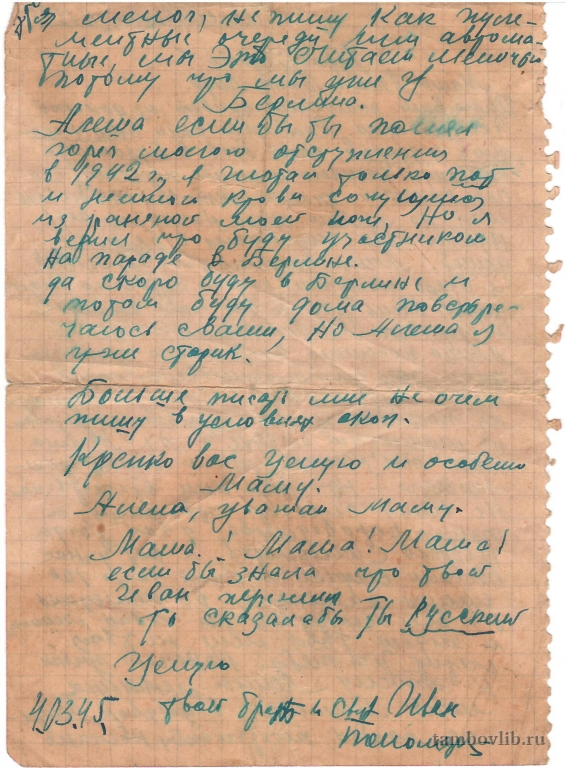 мелог, не пишу как пуле-
ментные очереди или автома-
тные, мы это считаем мелочью
потому что мы уже у
Берлина.
Алеша если бы ты понял
горе моего отступления
в 1942 г, я глотал только пот
и немного крови сочущейся
из раненой моей ноги, но я
верил что буду участником
на параде в Берлине.
да скоро буду в Берлине и
потом буду дома повстре-
чаюсь с вами, но Алеша я
уже старик.
Больше писать мне не очем
пишу в условиях окоп.
Крепко вас целую и особенно
Маму.
Алеша, уважай Маму.
Мама! Мама! Мама!
если бы знала что твой
Иван пережил
Ты сказала бы Ты Русский
Целую
4.03.45. твой брат и сын Иван
tambovlib.ru